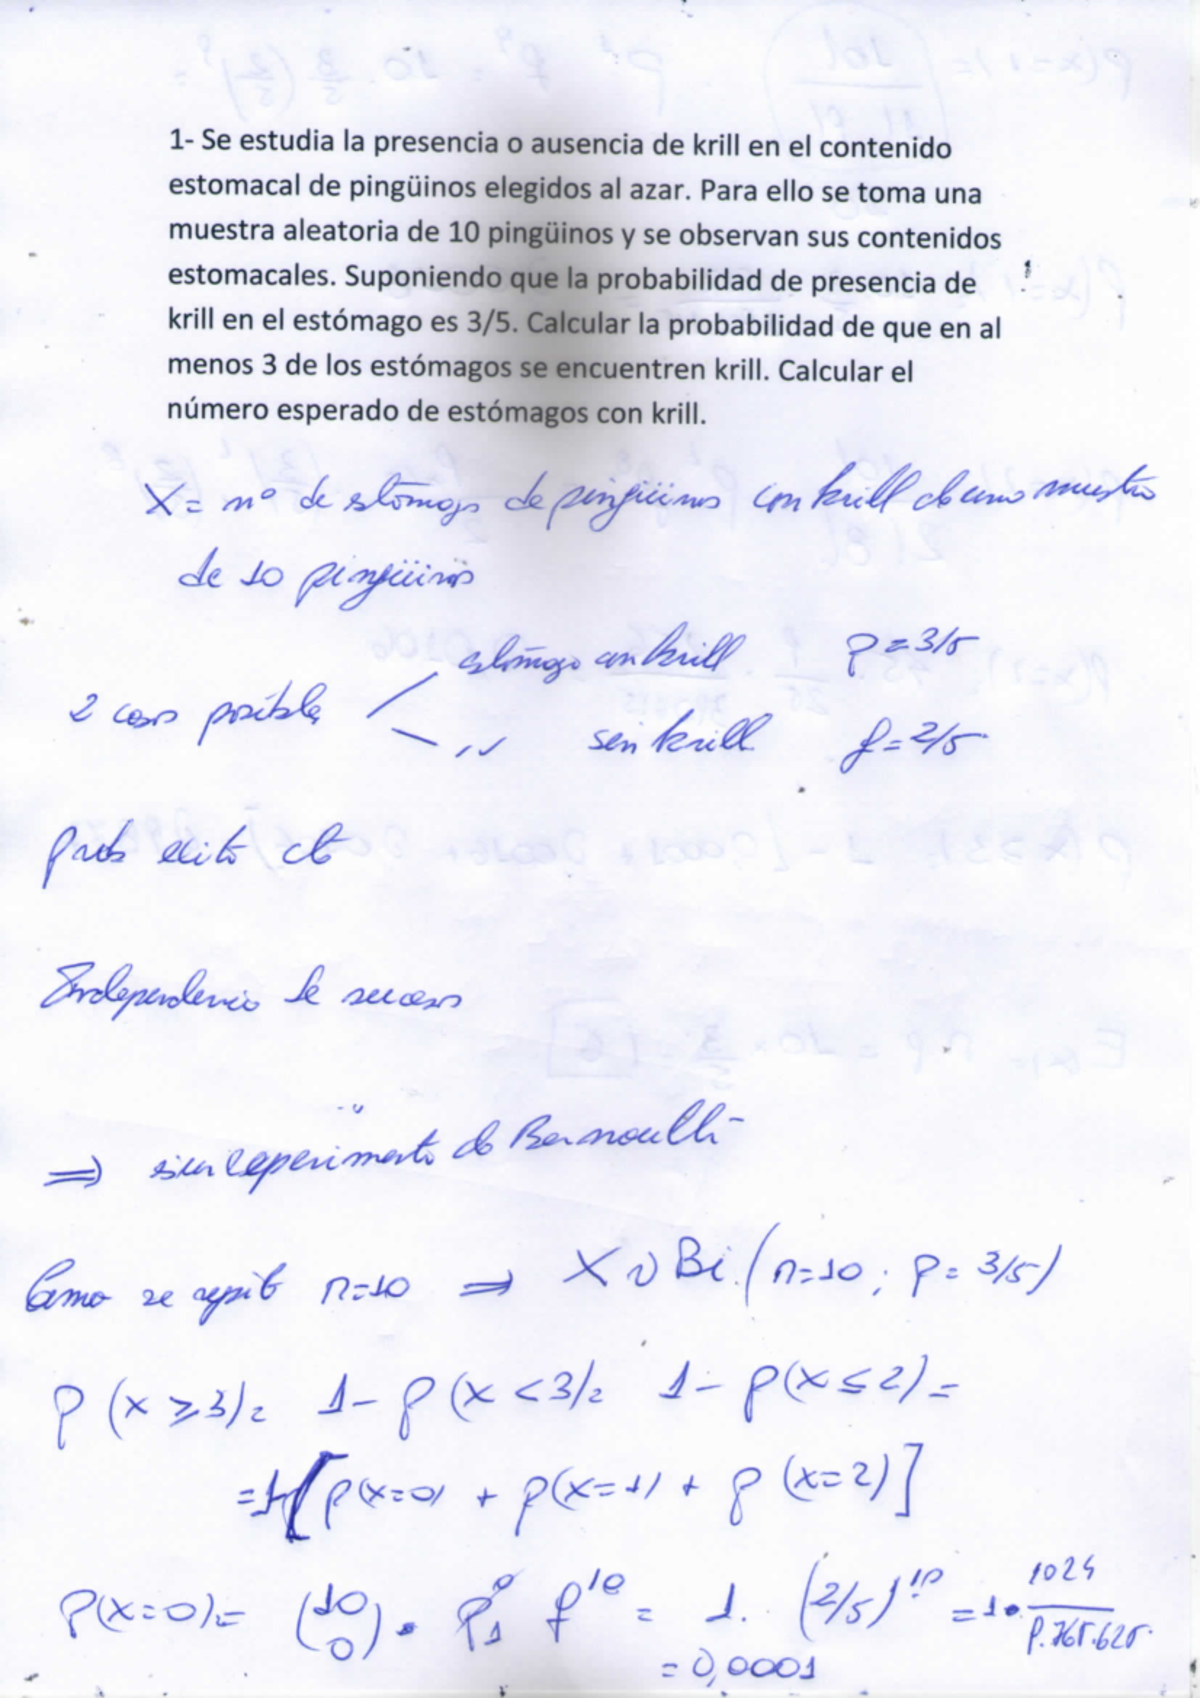 1- Se estudia la presencia o ausencia de krill en el contenido
estomacal de pingüinos elegidos al azar. Para ello se toma una
muestra aleatoria de 10 pingüinos y se observan sus contenidos
estomacales. Suponiendo que la probabilidad de presencia de
krill en el estómago es 3/5. Calcular la probabilidad de que en al
menos 3 de los estómagos se encuentren krill. Calcular el
número esperado de estómagos con krill.
X = nº de estómagos de pingüinos con krill de una muestra
de 10 pingüinos
estómago con krill p = 3/5
2 casos posibles
" sin krill q = 2/5
prob éxito cte
Independencia de sucesos
⇒ es un experimento de Bernoulli
Como se repite n=10 ⇒ X ~ Bi (n=10 ; p = 3/5)
P(x ≥ 3) = 1 - P(x < 3) = 1 - P(x ≤ 2) =
= 1-[P(x=0) + P(x=1) + P(x=2)]
P(x=0) = (10 0) · p⁰ q¹⁰ = 1 · (2/5)¹⁰ = 1 · 1024 / 9.765.625
= 0,0001